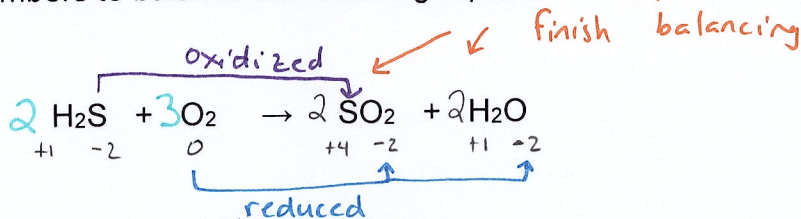 finish balancing
oxidized
2 H2S + 3O2 → 2 SO2 + 2H2O
+1 -2 0 +4 -2 +1 -2
reduced